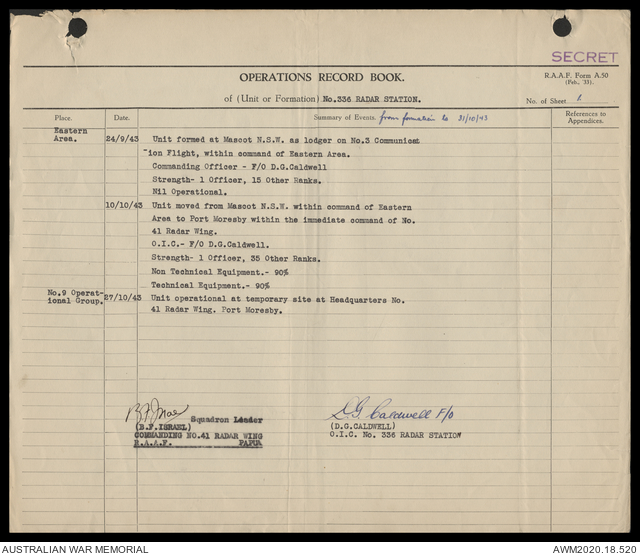 SECRET
OPERATIONS RECORD BOOK.
R.A.A.F. Form A.50
(Feb., '33).
of (Unit or Formation) No.336 RADAR STATION.
No. of Sheet 1.
Place.
Date.
Summary of Events. from formation to 31/10/43
References to
Appendices.
Eastern
Area.
24/9/43 Unit formed at Mascot N.S.W. as lodger on No.3 Communicat
-ion Flight, within command of Eastern Area.
Commanding Officer - F/O D.G.Caldwell
Strength- 1 Officer, 15 Other Ranks.
Nil Operational.
10/10/43 Unit moved from Mascot N.S.W. within command of Eastern
Area to Port Moresby within the immediate command of No.
41 Radar Wing.
O.I.C.- F/O D.G.Caldwell.
Strength- 1 Officer, 35 Other Ranks.
Non Technical Equipment.- 90%
Technical Equipment.- 90%
No.9 Operat-
ional Group. 27/10/43 Unit operational at temporary site at Headquarters No.
41 Radar Wing. Port Moresby.
Squadron Leader
(B.F.ISRAEL)
COMMANDING NO.41 RADAR WING
R.A.A.F. PAPUA
D.G. Caldwell F/O
(D.G.CALDWELL)
O.I.C. No. 336 RADAR STATION
AUSTRALIAN WAR MEMORIAL
AWM2020.18.520